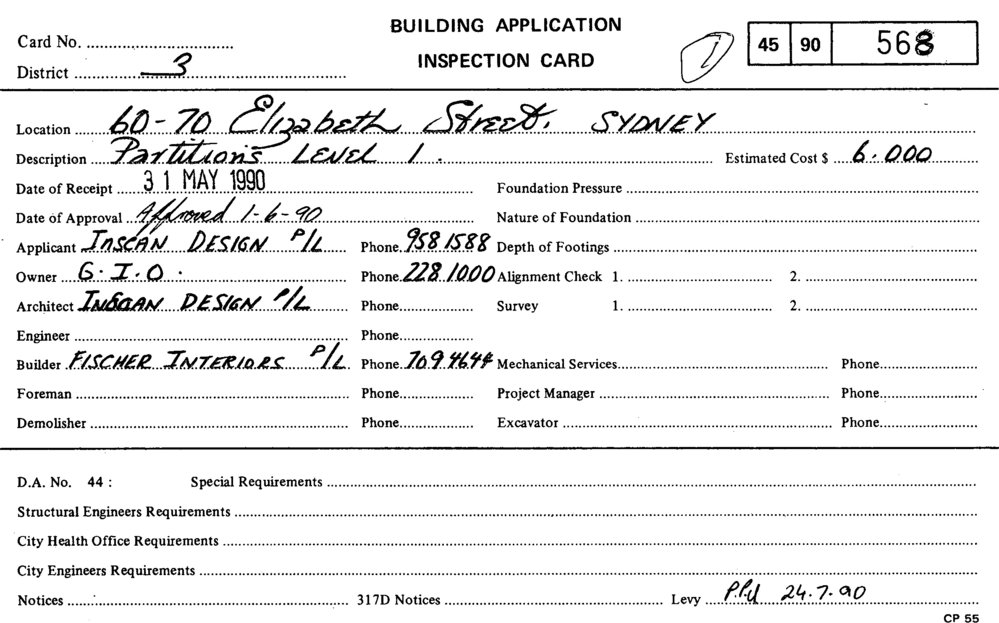 BUILDING APPLICATION
INSPECTION CARD
Card No.
45 90 568
1
District 3
Location 60-70 Elizabeth Street. SYDNEY
Description Partitions LEVEL 1. Estimated Cost $ 6.000
Date of Receipt 31 MAY 1990 Foundation Pressure
Date of Approval Approved 1-6-90 Nature of Foundation
Applicant INSCAN DESIGN P/L Phone 958 1588 Depth of Footings
Owner G.I.O. Phone 228 1000 Alignment Check 1. 2.
Architect INSCAN DESIGN P/L Phone Survey 1. 2.
Engineer Phone
Builder FISCHER INTERIORS P/L Phone 709 4644 Mechanical Services Phone
Foreman Phone Project Manager Phone
Demolisher Phone Excavator Phone
D.A. No. 44 : Special Requirements
Structural Engineers Requirements
City Health Office Requirements
City Engineers Requirements
Notices 317D Notices Levy 24.7.90
CP 55